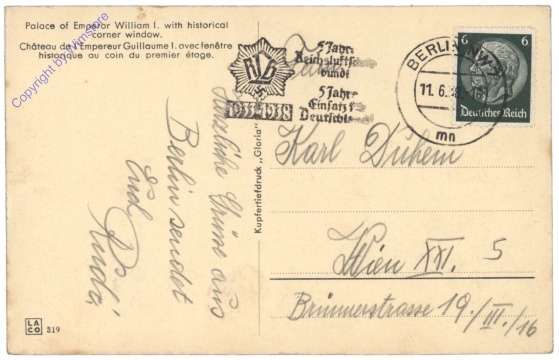 Palace of Emperor William I. with historical
corner window.
Château de l'Empereur Guillaume I. avec fenêtre
historique au coin du premier étage.
Copyright By Vimstore
Herzliche Grüsse aus
Berlin sendet
Rudi
LACO 319
Kupfertiefdruck „Gloria"
RLB
5 Jahre
Reichsluftschutz
bund
5 Jahre
Einsatz f
Deutschl
1933-1938
BERLIN NW 7
11. 6. 38
mn
6 6
Deutsches Reich
Karl Duhem
Wien XXI. 5
Brünnerstrasse 19./III./16